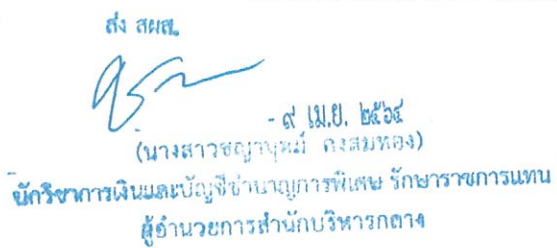 ส่ง สผส.
- ๙ เม.ย. ๒๕๖๔
(นางสาวชญานุตม์ คงสมทอง)
นักวิชาการเงินและบัญชีชำนาญการพิเศษ รักษาราชการแทน
ผู้อำนวยการสำนักบริหารกลาง